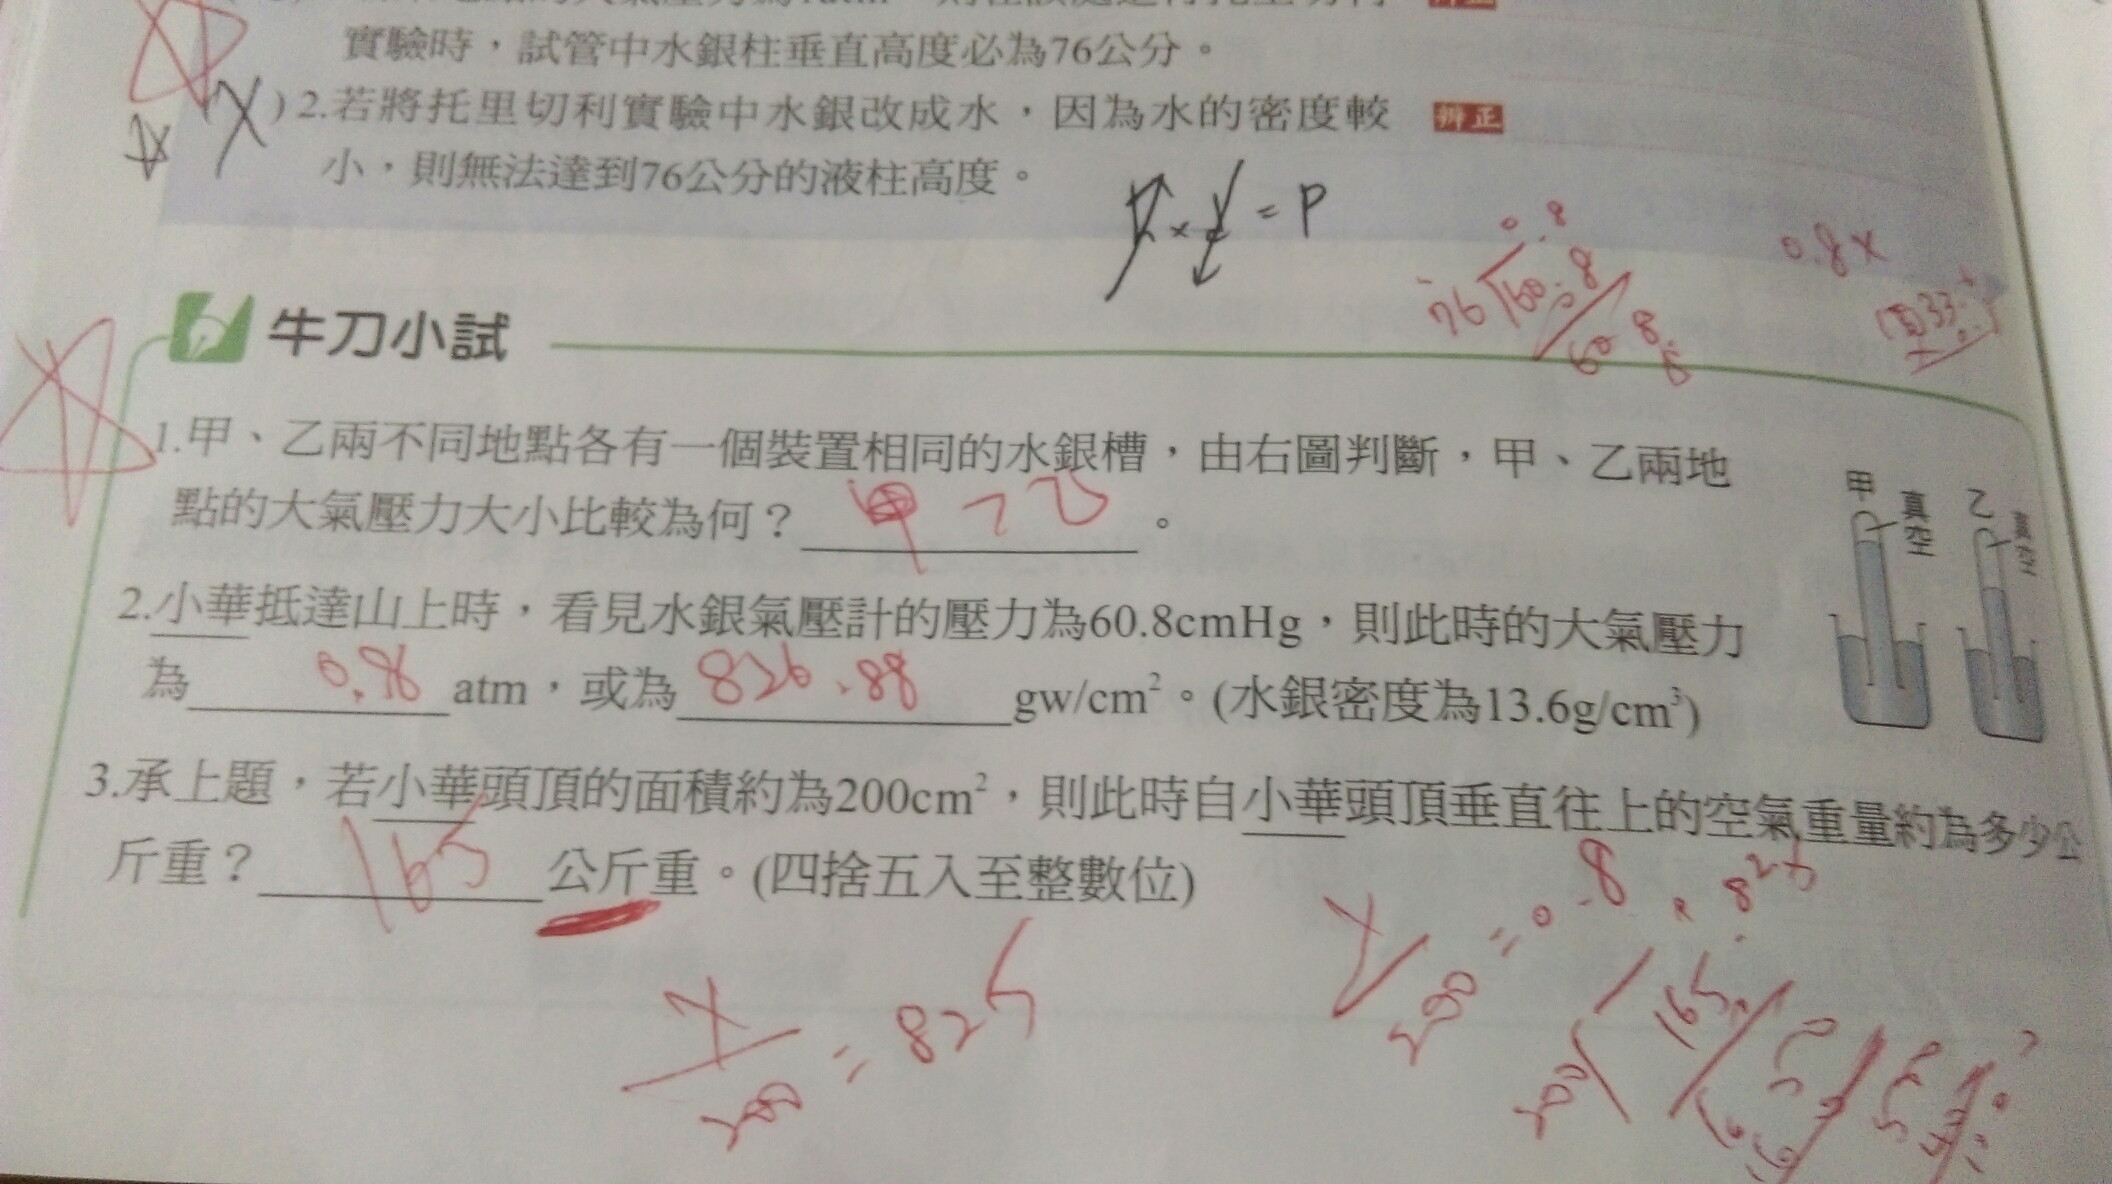 實驗時，試管中水銀柱垂直高度必為76公分。
X )2.若將托里切利實驗中水銀改成水，因為水的密度較
辨正
小，則無法達到76公分的液柱高度。
= P
0.8
76 60.8
60 8
0.8x
牛刀小試
1.甲、乙兩不同地點各有一個裝置相同的水銀槽，由右圖判斷，甲、乙兩地
點的大氣壓力大小比較為何？ 甲 > 乙 。
甲 真空 乙 真空
2.小華抵達山上時，看見水銀氣壓計的壓力為60.8cmHg，則此時的大氣壓力
為 atm，或為 826.88 gw/cm²。(水銀密度為13.6g/cm³)
3.承上題，若小華頭頂的面積約為200cm²，則此時自小華頭頂垂直往上的空氣重量約為多少公
斤重？ 165 公斤重。(四捨五入至整數位)
x/200 = 825
200 = 0.8
165
200